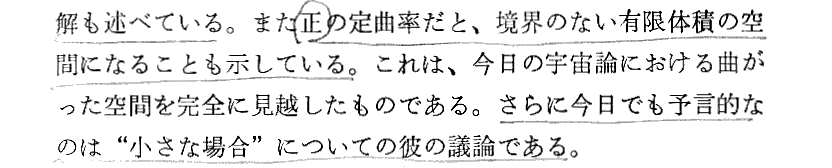 解も述べている。また正の定曲率だと、境界のない有限体積の空
間になることも示している。これは、今日の宇宙論における曲が
った空間を完全に見越したものである。さらに今日でも予言的な
のは“小さな場合”についての彼の議論である。